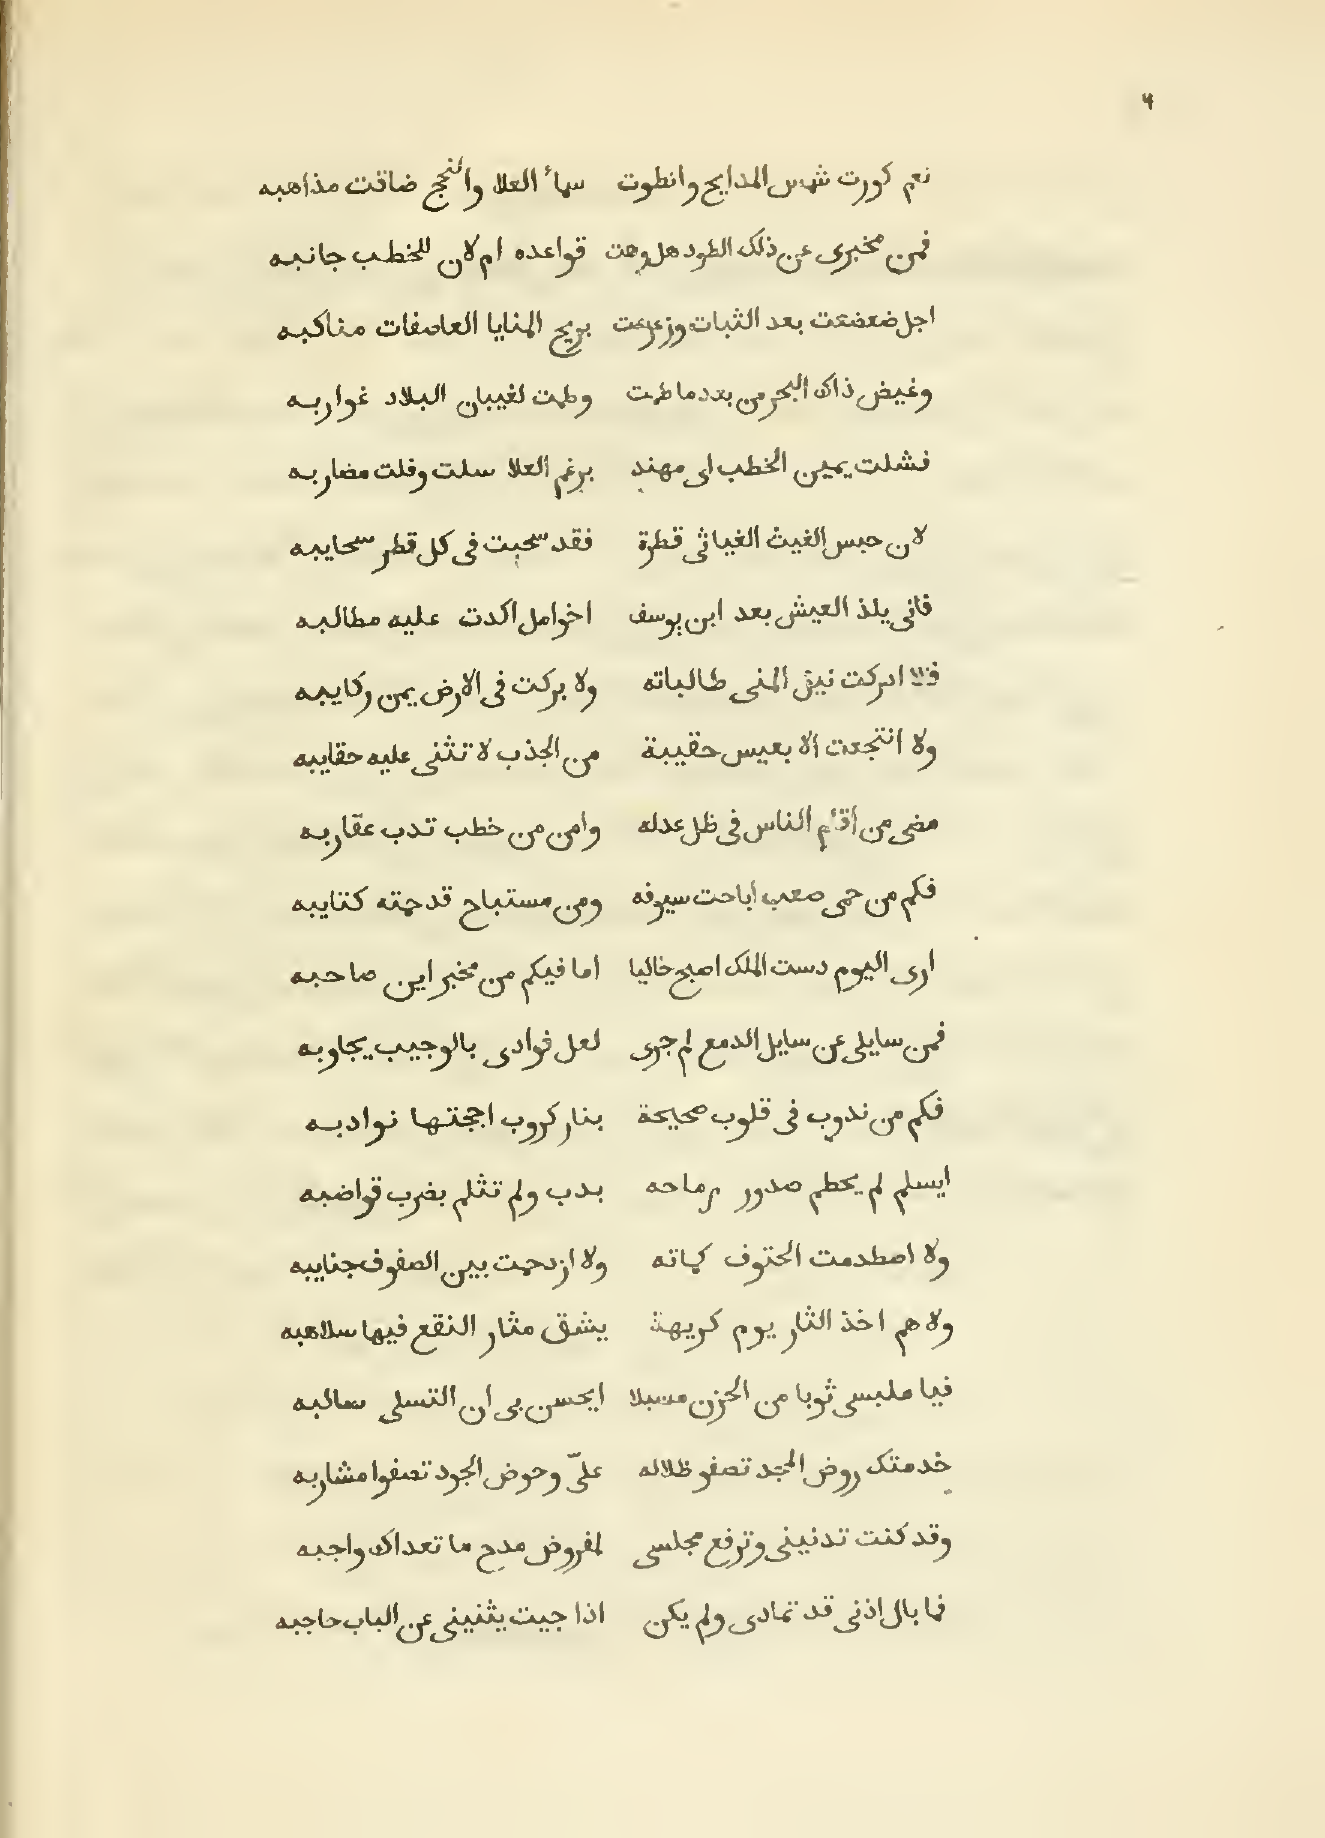 ٩
نعم كورت شمس المدايح وانطوت سماء العلا والنجح ضاقت مذاهبه
فمن مخبرى عن ذلك الطود هل وهت قواعده ام لان للخطب جانبه
اجل ضعضعت بعد الثبات وزعزعت بريح المنايا العاصفات مناكبه
وغيض ذاك البحر من بعد ما طمت وطمت لغيبان البلاد غواربه
فشلت يمين الخطب اى مهند برغم العلا سلت وفلت مضاربه
لان حبس الغيث الغياثى قطرة فقد سحبت فى كل قطر سحايبه
فانى يلذ العيش بعد ابن يوسف اخوامل اكدت عليه مطالبه
فلا ادركت نيل المنى طالباته ولا بركت فى الارض يمن ركايبه
ولا انتجعت الا بعيس حقيبة من الجذب لا تثنى عليه حقايبه
مضى من أقام الناس فى ظل عدله وامن من خطب تدب عقاربه
فكم من حمى صعب اباحت سيوفه ومن مستباح قد حمته كتايبه
ارى اليوم دست الملك اصبح خاليا اما فيكم من مخبر اين صاحبه
فمن سايلى عن سايل الدمع لم جرى لعل فوادى بالوجيب يجاوبه
فكم من ندوب فى قلوب صحيحة بنار كروب اججتها نوادبه
ايسلم لم يحطم صدور رماحه بدب ولم تثلم بضرب قواضبه
ولا اصطدمت الحتوف كماته ولا ازدحمت بين الصفوف جنايبه
ولا هم اخذ الثار يوم كريهة يشق مثار النقع فيها سلاهبه
فيا ملبسى ثوبا من الحزن مسبلا ايحسن بى ان التسلى سالبه
خدمتك روض المجد تصفو ظلاله علىّ وحوض الجود تصفوا مشاربه
وقد كنت تدنينى وترفع مجلسى لمفروض مدح ما تعداك واجبه
فما بال اذنى قد تمادى ولم يكن اذا جيت يثنينى عن الباب حاجبه